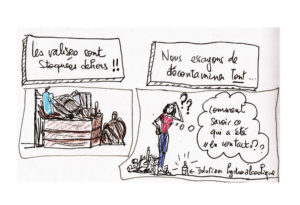 Les valises sont
stockées dehors !!
Nous essayons de
décontaminer tout...
??
comment
savoir ce
qui a été
"en contact"??
← solution hydroalcoolique